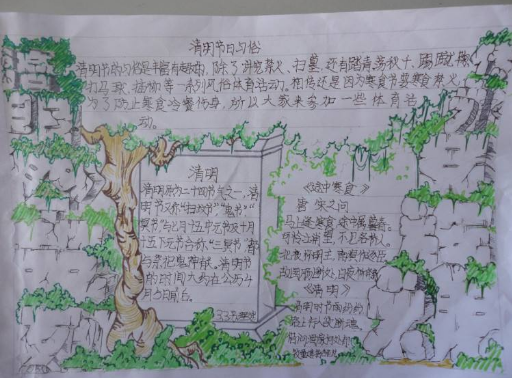 清明节日与俗
清明节的习俗是丰富有趣的,除了讲究禁火、扫墓,还有踏青、荡秋千、蹴鞠、
打马球、插柳等一系列风俗体育活动。相传这是因为寒食节要寒食禁火,
为了防止寒食冷餐伤身,所以大家来参加一些体育活
动。
清明
清明是二十四节气之一,清
明节又称"扫坟节""鬼节""
冥节"与七月十五中元节及十月
十五下元节合称"三冥节",
与祭祀鬼神有关。清明节
的时间大约在公历4
月5日前后。
《途中寒食》
宋之问
马上逢寒食,途中属暮春。
可怜江浦望,不见洛桥人。
北极怀明主,南溟作逐臣
故园肠断处,日夜柳条新
《清明》
清明时节雨纷纷
路上行人欲断魂
借问酒家何处有
牧童遥指杏花